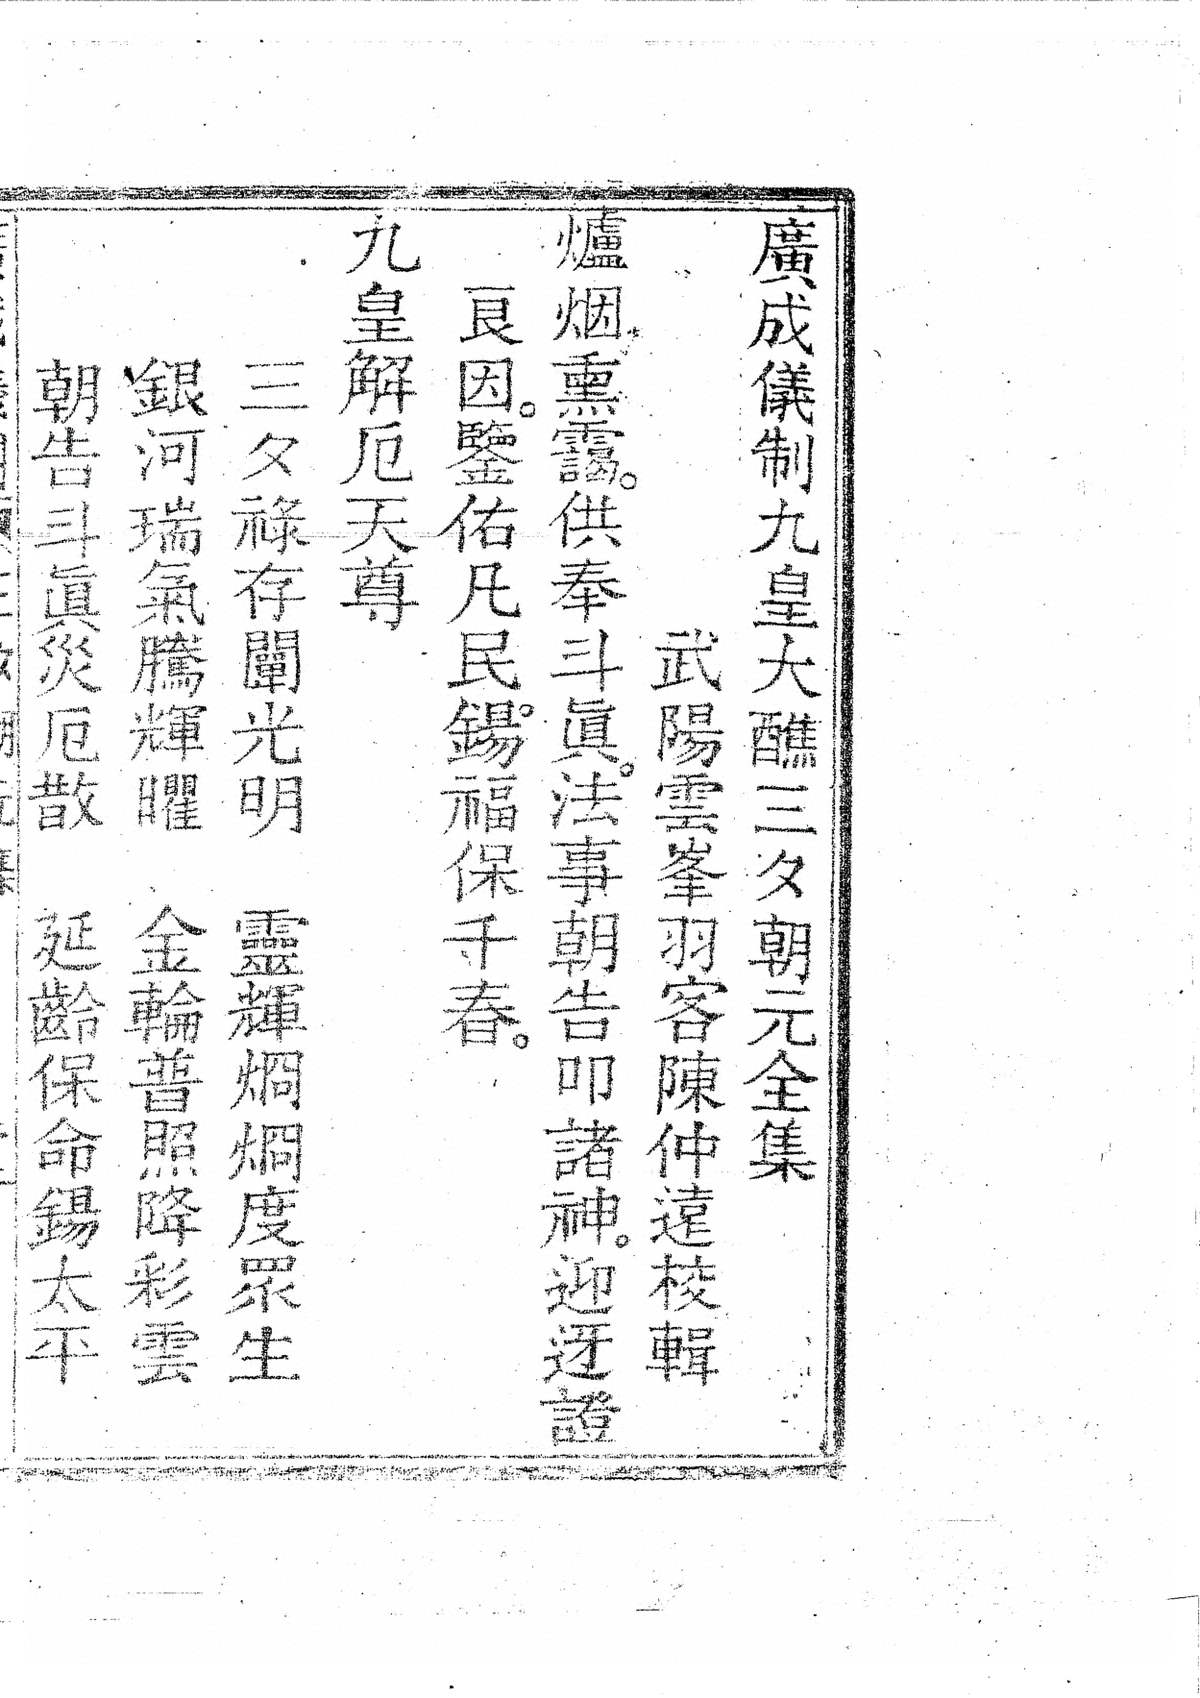 廣成儀制九皇大醮三夕朝元全集
武陽雲峯羽客陳仲遠校輯
爐烟熏靄。供奉斗眞。法事朝告叩諸神。迎迓證
良因。鑒佑凡民。錫福保千春。
九皇解厄天尊
三夕祿存闡光明　靈輝烱烱度眾生
銀河瑞氣騰輝曜　金輪普照降彩雲
朝告斗眞災厄散　延齡保命錫太平